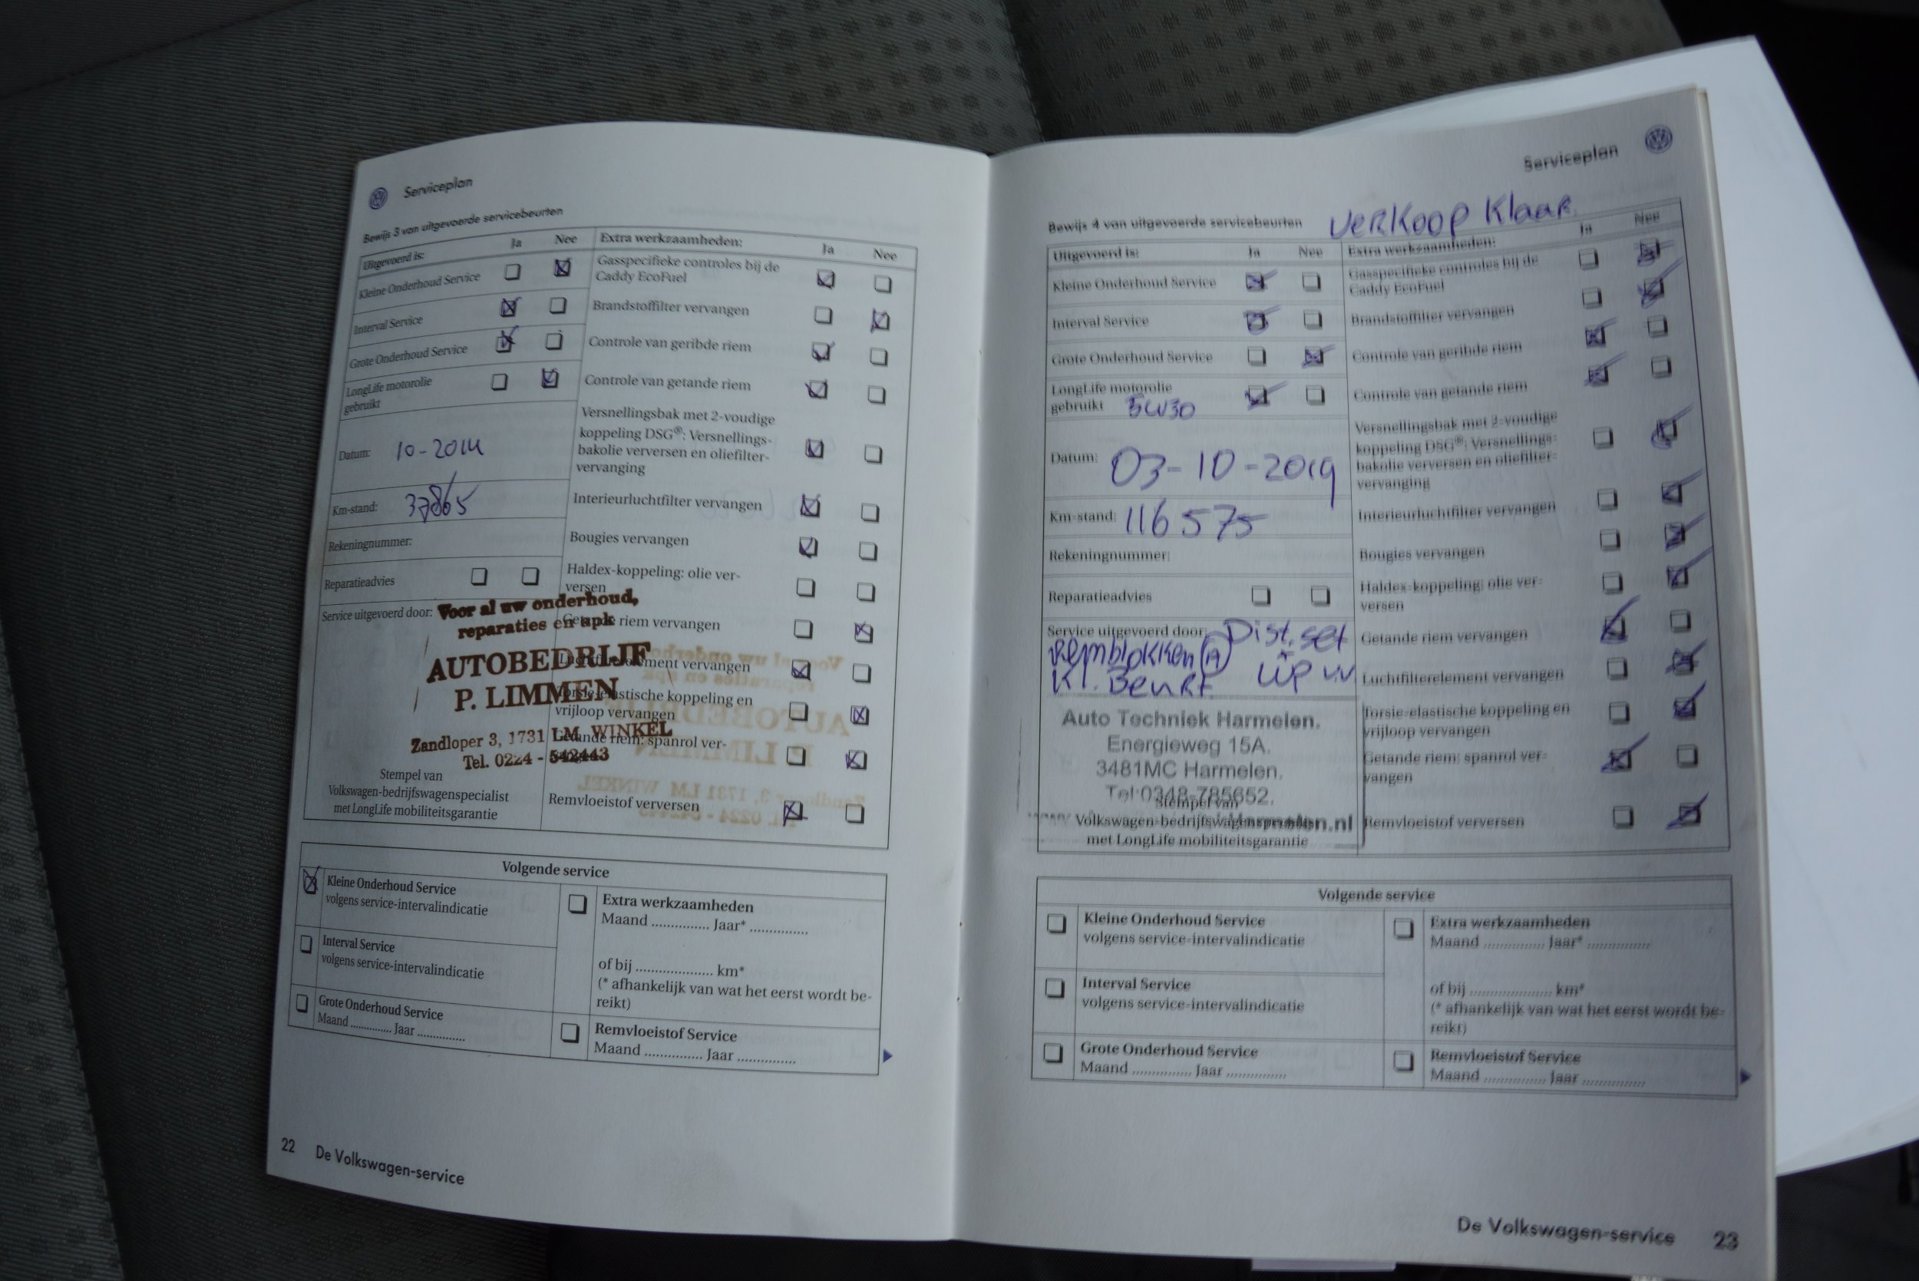 Serviceplan
Bewijs 3 van uitgevoerde servicebeurten
Uitgevoerd is: Ja Nee
Kleine Onderhoud Service
Interval Service
Grote Onderhoud Service
LongLife motorolie
gebruikt
Datum: 10-2014
Km-stand: 37865
Rekeningnummer:
Reparatieadvies
Service uitgevoerd door:
Voor al uw onderhoud,
reparaties en apk
AUTOBEDRIJF
P. LIMMEN
Zandloper 3, 1731 LM WINKEL
Tel. 0224 - 542443
Stempel van
Volkswagen-bedrijfswagenspecialist
met LongLife mobiliteitsgarantie
Extra werkzaamheden: Ja Nee
Gasspecifieke controles bij de
Caddy EcoFuel
Brandstoffilter vervangen
Controle van geribde riem
Controle van getande riem
Versnellingsbak met 2-voudige
koppeling DSG®: Versnellings-
bakolie verversen en oliefilter-
vervanging
Interieurluchtfilter vervangen
Bougies vervangen
Haldex-koppeling: olie ver-
versen
Getande riem vervangen
Luchtfilterelement vervangen
Torsie-elastische koppeling en
vrijloop vervangen
Getande riem: spanrol ver-
Remvloeistof verversen
Volgende service
Kleine Onderhoud Service
volgens service-intervalindicatie
Interval Service
volgens service-intervalindicatie
Grote Onderhoud Service
Maand .............. Jaar ................
Extra werkzaamheden
Maand ............... Jaar* ...............
of bij .................... km*
(* afhankelijk van wat het eerst wordt be-
reikt)
Remvloeistof Service
Maand ............... Jaar ...............
22 De Volkswagen-service
Serviceplan
Bewijs 4 van uitgevoerde servicebeurten
Verkoop Klaar
Uitgevoerd is: Ja Nee
Kleine Onderhoud Service
Interval Service
Grote Onderhoud Service
LongLife motorolie
gebruikt 5W30
Datum: 03-10-2019
Km-stand: 116575
Rekeningnummer:
Reparatieadvies
Service uitgevoerd door:
Dist. set
Remblokken
Kl. Beurt
Auto Techniek Harmelen.
Energieweg 15A.
3481MC Harmelen.
Tel:0348-785652.
Stempel van
Volkswagen-bedrijfswagenspecialist
met LongLife mobiliteitsgarantie
Extra werkzaamheden: Ja Nee
Gasspecifieke controles bij de
Caddy EcoFuel
Brandstoffilter vervangen
Controle van geribde riem
Controle van getande riem
Versnellingsbak met 2-voudige
koppeling DSG®: Versnellings-
bakolie verversen en oliefilter-
vervanging
Interieurluchtfilter vervangen
Bougies vervangen
Haldex-koppeling: olie ver-
versen
Getande riem vervangen
Luchtfilterelement vervangen
Torsie-elastische koppeling en
vrijloop vervangen
Getande riem: spanrol ver-
vangen
Remvloeistof verversen
Volgende service
Kleine Onderhoud Service
volgens service-intervalindicatie
Interval Service
volgens service-intervalindicatie
Grote Onderhoud Service
Maand ............... Jaar ...............
Extra werkzaamheden
Maand ............... Jaar* ...............
of bij .................... km*
(* afhankelijk van wat het eerst wordt be-
reikt)
Remvloeistof Service
Maand ............... Jaar ...............
De Volkswagen-service 23